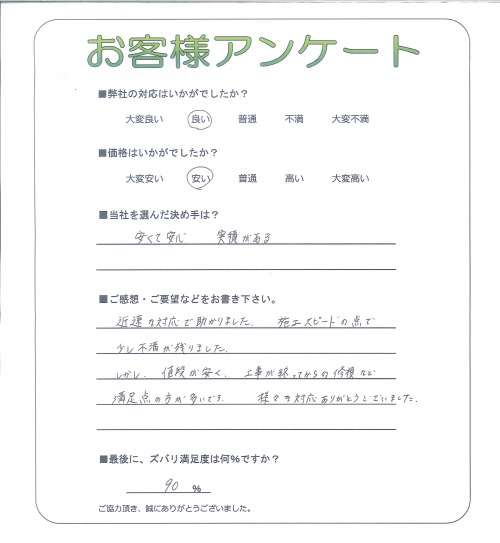 お客様アンケート
■弊社の対応はいかがでしたか？
大変良い 良い 普通 不満 大変不満
■価格はいかがでしたか？
大変安い 安い 普通 高い 大変高い
■当社を選んだ決め手は？
安くて安心 実績がある
■ご感想・ご要望などをお書き下さい。
迅速な対応で助かりました. 施工スピードの点で
少し不満が残りました.
しかし、値段が安く、工事が終ってからの修複など
満足点の方が多いです. 様々な対応ありがとうございました.
■最後に、ズバリ満足度は何%ですか？
90 %
ご協力頂き、誠にありがとうございました。